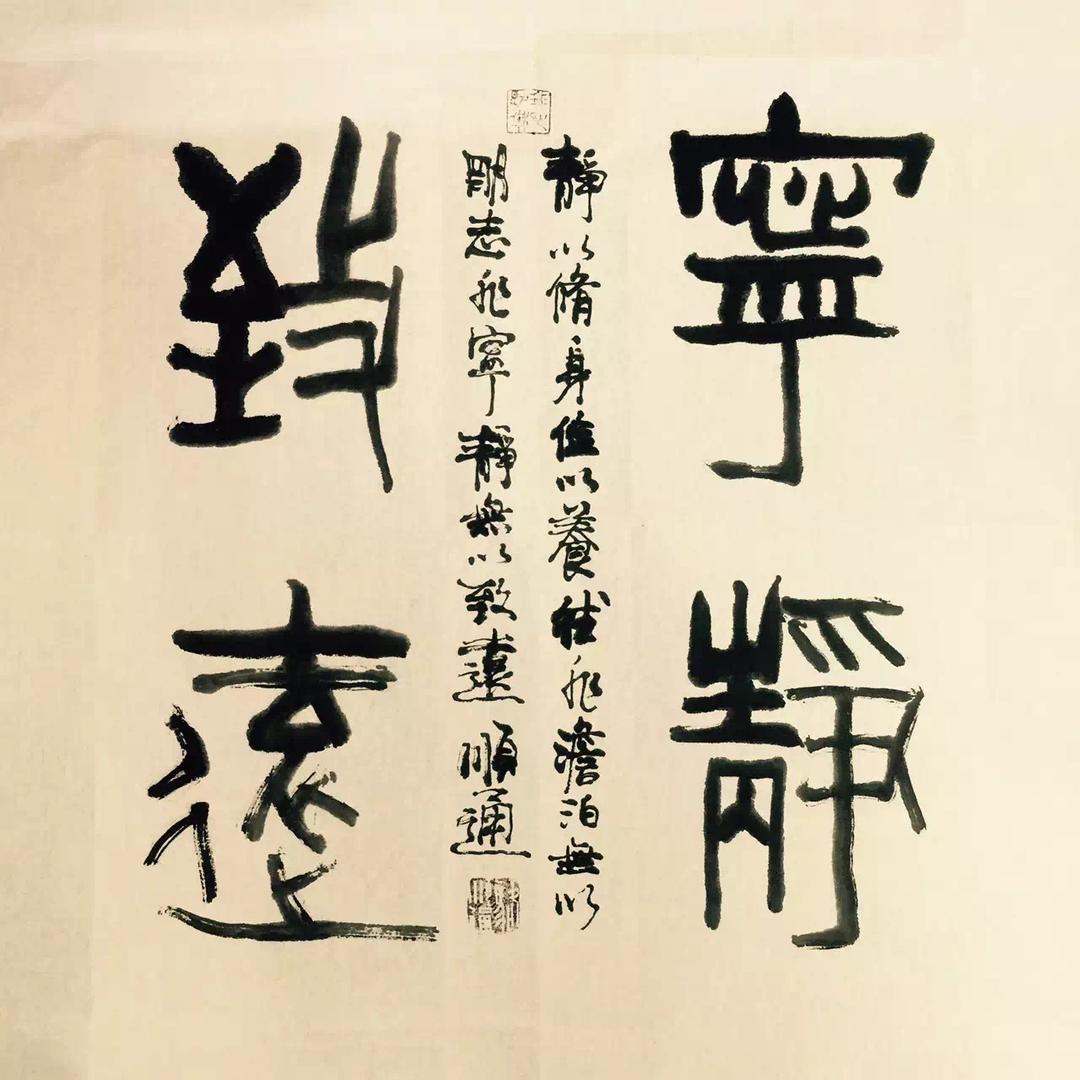 寧靜
致遠
靜以脩身儉以養德非澹泊無以
朙志非寧靜無以致遠 順通